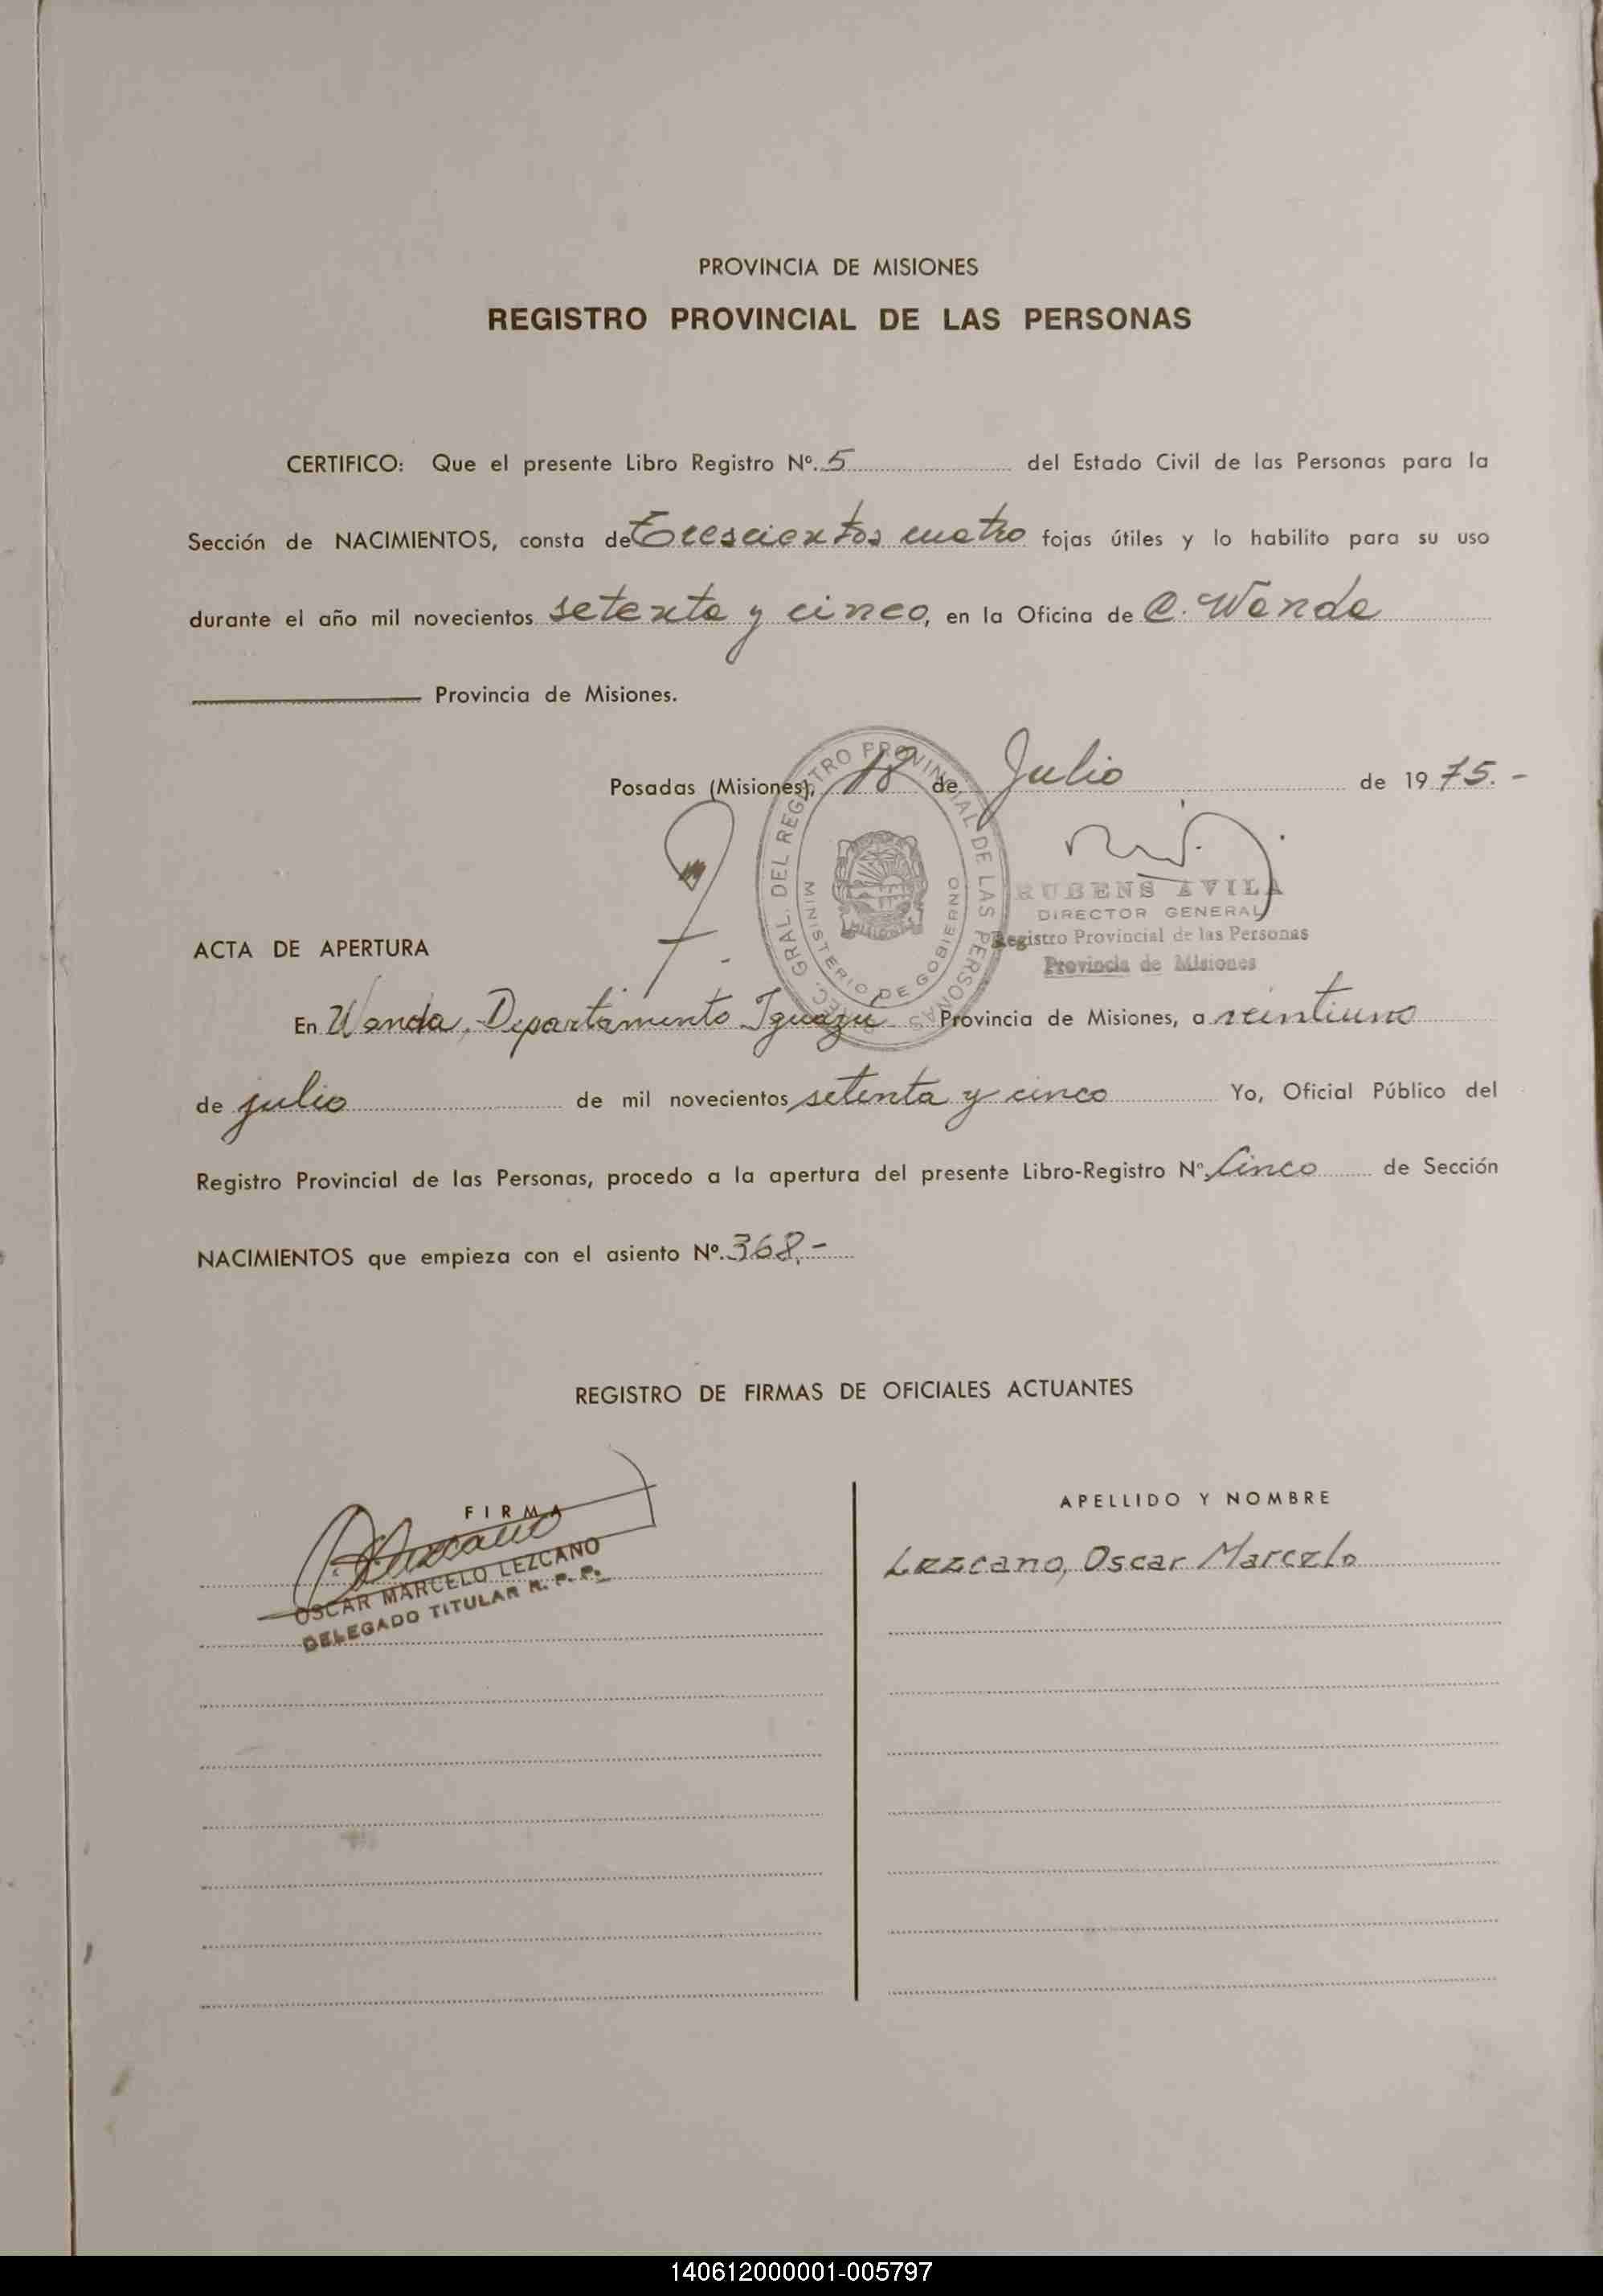 PROVINCIA DE MISIONES
REGISTRO PROVINCIAL DE LAS PERSONAS
CERTIFICO: Que el presente Libro Registro Nº. 5 del Estado Civil de las Personas para la
Sección de NACIMIENTOS, consta de Trescientos cuatro fojas útiles y lo habilito para su uso
durante el año mil novecientos setenta y cinco, en la Oficina de C. Wanda
Provincia de Misiones.
Posadas (Misiones), 18 de Julio de 1975.-
DIREC. GRAL. DEL REGISTRO PROVINCIAL DE LAS PERSONAS
MINISTERIO DE GOBIERNO
RUBENS AVILA
DIRECTOR GENERAL
Registro Provincial de las Personas
Provincia de Misiones
ACTA DE APERTURA
En Wanda, Departamento Iguazú Provincia de Misiones, a veintiuno
de julio de mil novecientos setenta y cinco Yo, Oficial Público del
Registro Provincial de las Personas, procedo a la apertura del presente Libro-Registro Nº Cinco de Sección
NACIMIENTOS que empieza con el asiento Nº. 368.-
REGISTRO DE FIRMAS DE OFICIALES ACTUANTES
FIRMA
APELLIDO Y NOMBRE
Lezcano, Oscar Marcelo
OSCAR MARCELO LEZCANO
DELEGADO TITULAR R. P. P.
140612000001-005797